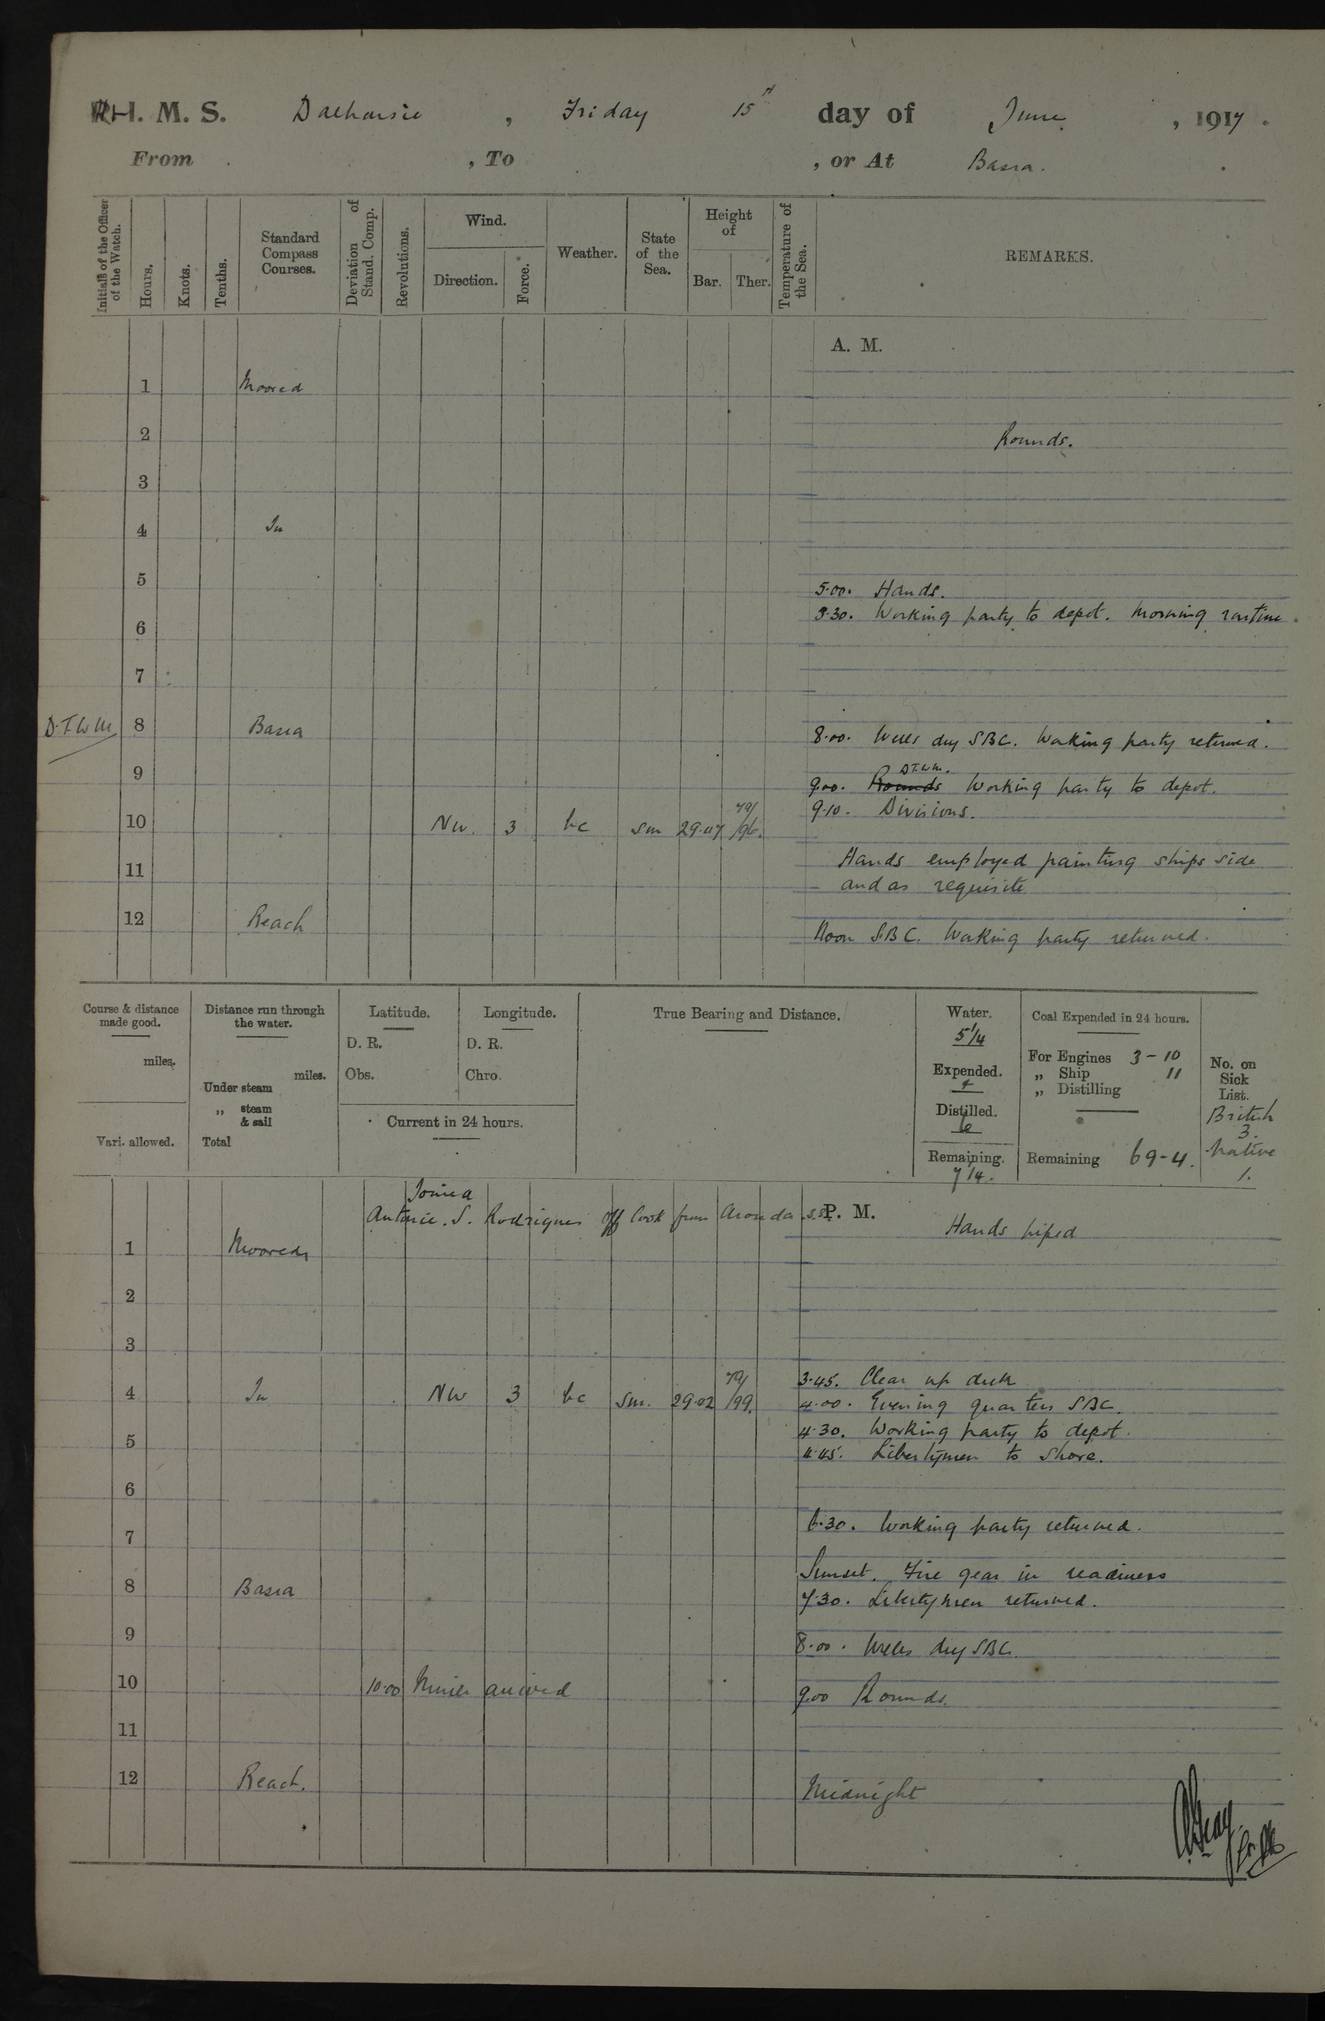 H. M. S. Dalhousie, Friday 15th day of June, 1917.
From , To , or At Basra.
Initials of the Officer of the Watch.
Hours.
Knots.
Tenths.
Standard Compass Courses.
Deviation of Stand. Comp.
Revolutions.
Wind.
Direction.
Force.
Weather.
State of the Sea.
Height of
Bar. Ther.
Temperature of the Sea.
REMARKS.
A. M.
1 Moored
2 Rounds.
3
4 In
5 5.00. Hands.
5.30. Working party to depot. Morning routine.
6
7
D.T.W.M. 8 Basra 8.00. Wells dry SBC. Working party returned.
9 D.T.W.M.
9.00. Rounds Working party to depot.
9.10. Divisions.
10 NW. 3 bc sm 29.07 79/96.
Hands employed painting ships side
11 and as requisite
12 Reach
Noon SBC. Working party returned.
Course & distance made good.
miles.
Vari. allowed.
Distance run through the water.
miles.
Under steam
„ steam & sail
Total
Latitude.
D. R.
Obs.
Longitude.
D. R.
Chro.
Current in 24 hours.
True Bearing and Distance.
Water.
5 1/4
Expended.
4
Distilled.
6
Remaining.
7 1/4.
Coal Expended in 24 hours.
For Engines 3-10
„ Ship 11
„ Distilling
Remaining 69-4.
No. on Sick List.
British
3.
Native
1.
Joined
Antonie. S. Rodrigues off Cook from Aronda s.s. P. M.
Hands piped
1 Moored
2
3
3.45. Clear up deck
4 In NW 3 bc sm. 29.02 79/99. 4.00. Evening quarters SBC.
4.30. Working party to depot.
5 4.45. Libertymen to shore.
6
6.30. Working party returned.
7
Sunset. Fire gear in readiness
8 Basra 7.30. Libertymen returned.
9 8.00. Wells dry SBC.
10 10.00 arrived 9.00 Rounds.
11
12 Reach. Midnight